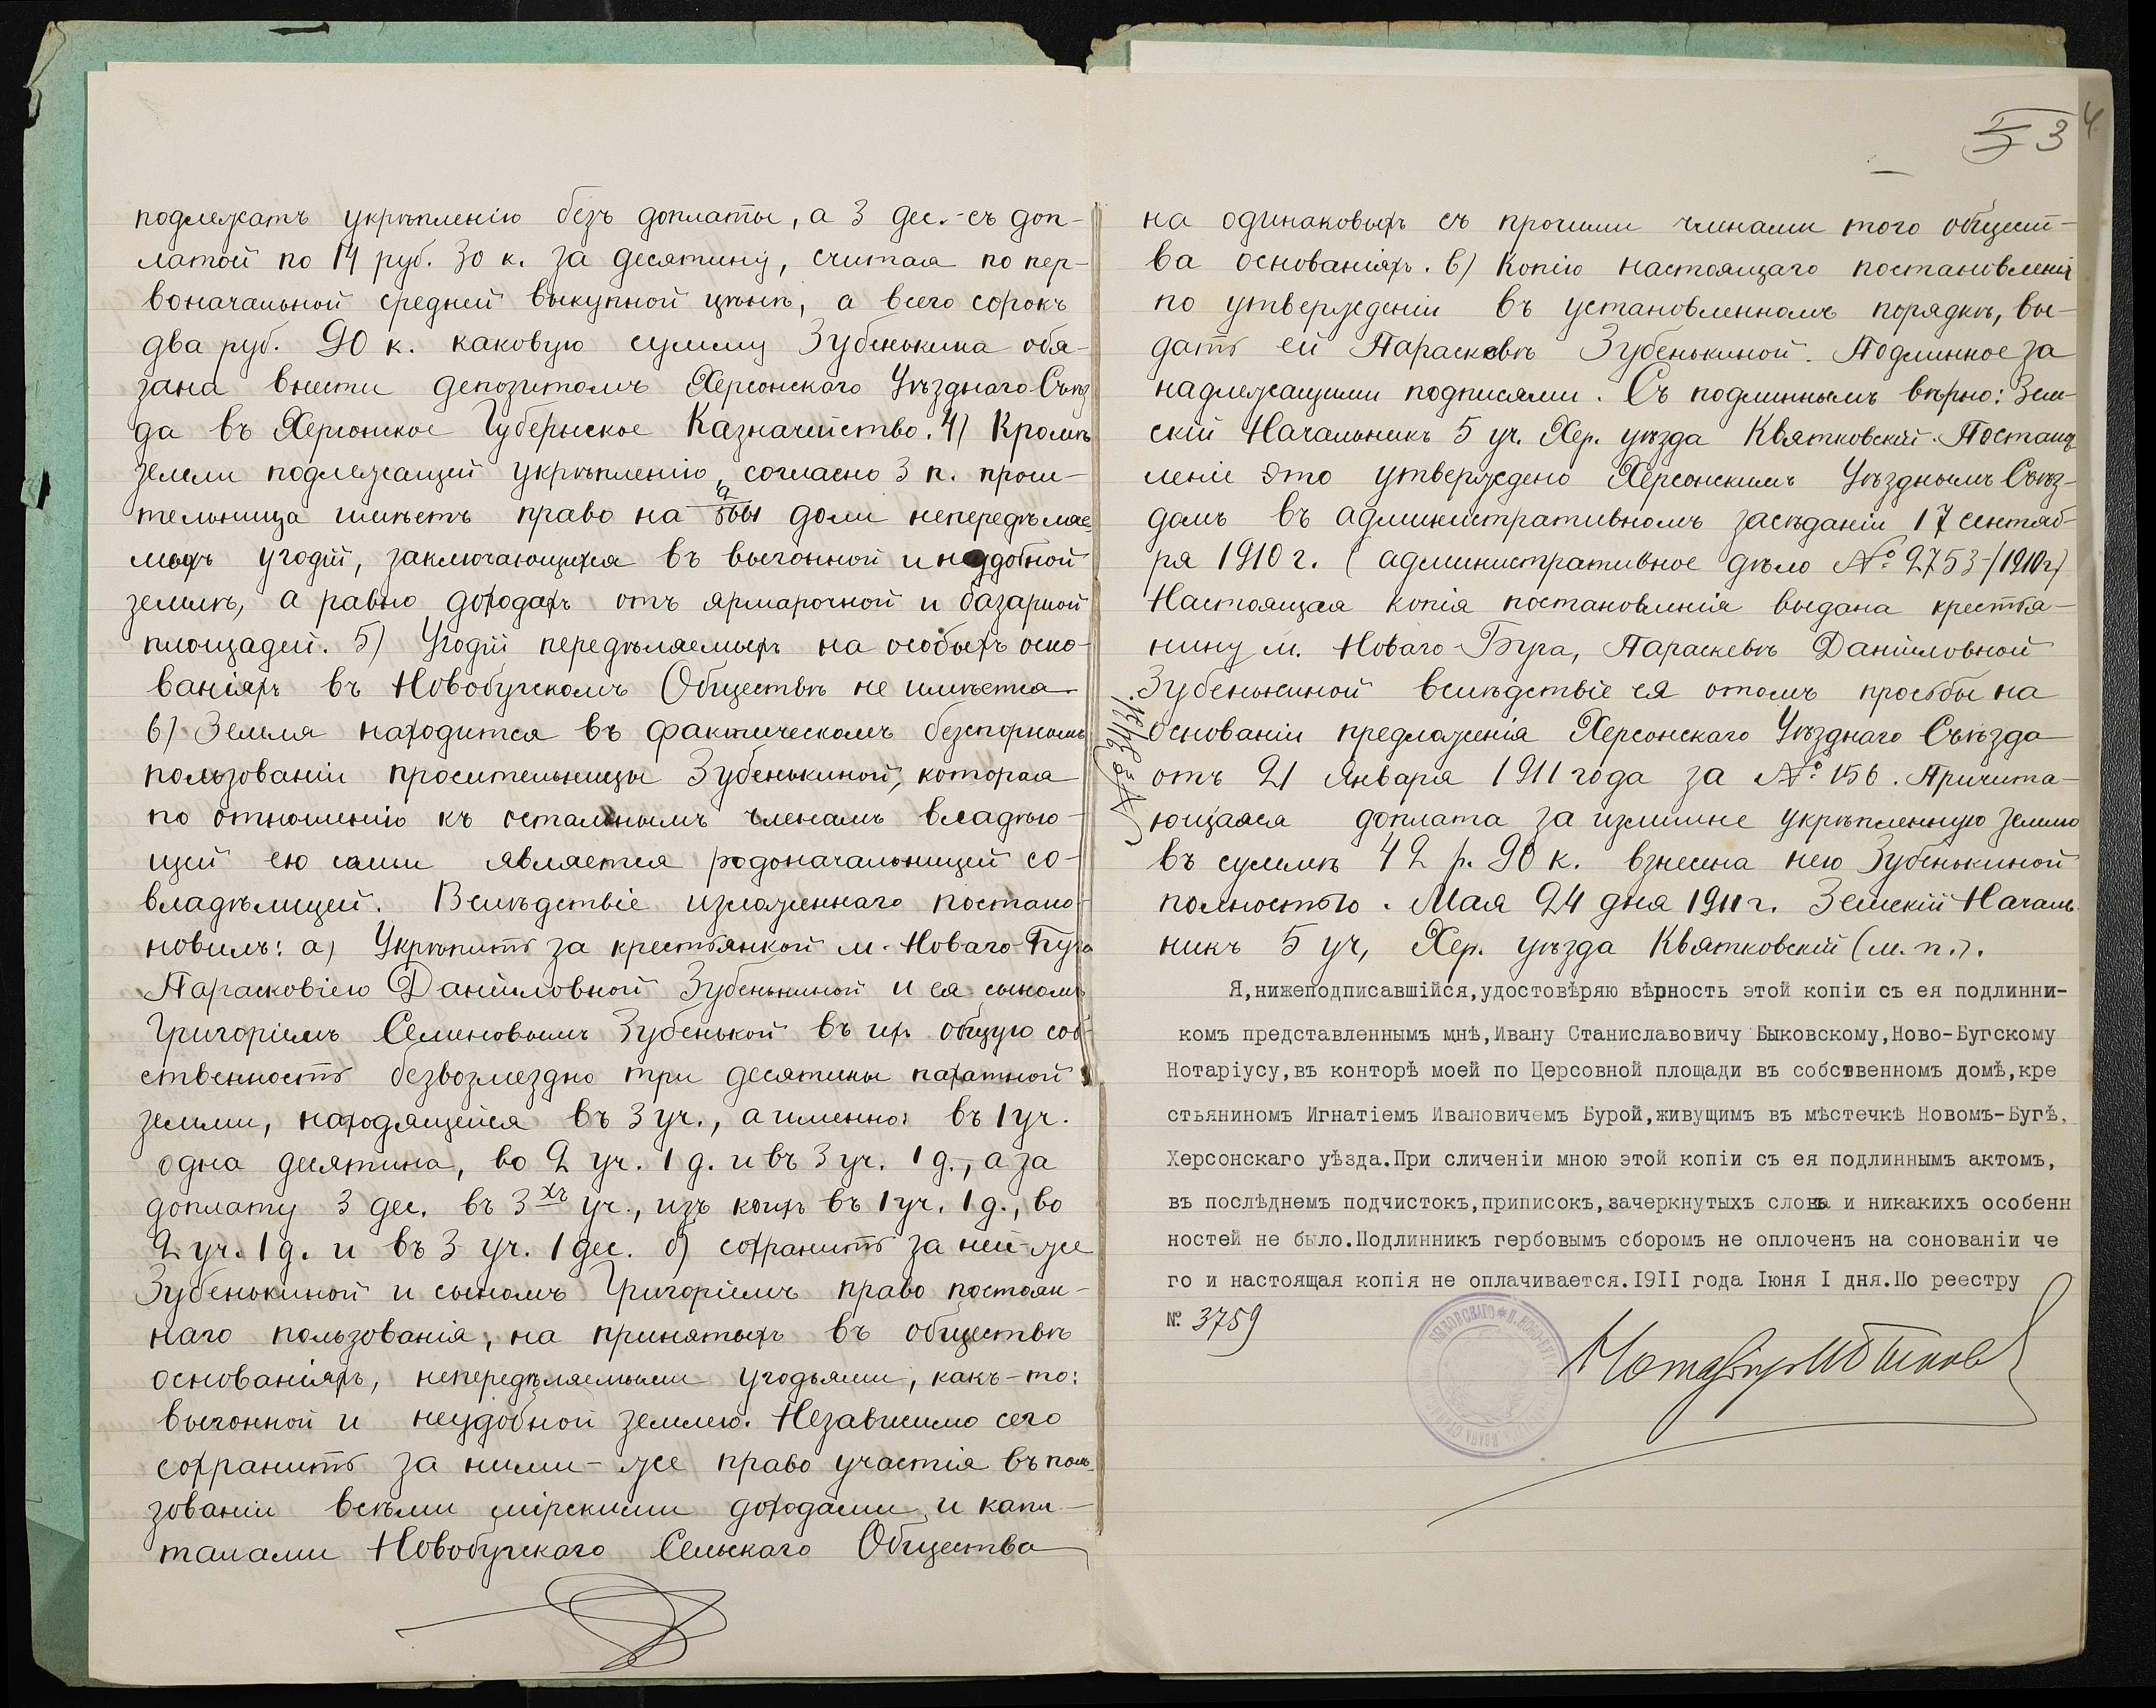 подлежатъ укрѣпленію безъ доплаты, а 3 дес.-съ доп-
латой по 14 руб. 30 к. за десятину, считая по пер-
воначальной средней выкупной цѣнѣ, а всего сорокъ
два руб. 90 к. каковую сумму Зубенькина обя-
зана внести депозитомъ Херсонскаго Уѣзднаго Съѣз
да въ Херсонское Губернское Казначейство. 4) Кромѣ
земли подлежащей укрѣпленію, согласно 3 п. проси-
тельница имѣетъ право на доли непередѣляе
мыхъ угодій, заключающихся въ выгонной и неудобной
землѣ, а равно доходахъ отъ ярмарочной и базарной
площадей. 5) Угодій передѣляемыхъ на особыхъ осно-
ваніяхъ въ Новобугскомъ Обществѣ не имѣется.
6) Земля находится въ фактическомъ безспорномъ
пользованіи просительницы Зубенькиной, которая
по отношенію къ остальнымъ членамъ владѣю-
щей ею семьи является родоначальницей со-
владѣлицей. Вслѣдствіе изложеннаго постано-
новилъ: а) Укрѣпить за крестьянкой м. Новаго-Буга
Парасковіею Даниловной Зубенькиной и ея сыномъ
Григоріемъ Семеновымъ Зубенькой въ ихъ общую соб-
ственность безвозмездно три десятины пахатной
земли, находящейся въ 3 уч., а именно: въ 1 уч.
одна десятина, во 2 уч. 1 д. и въ 3 уч. 1 д., а за
доплату 3 дес. въ 3хъ уч., изъ коихъ въ 1 уч. 1 д., во
2 уч. 1 д. и въ 3 уч. 1 дес. б) сохранить за ней-же
Зубенькиной и сыномъ Григоріемъ право постоян-
наго пользованія, на принятыхъ въ обществѣ
основаніяхъ, непередѣляемыми угодьями, какъ-то:
выгонной и неудобной землею. Независимо сего
сохранить за ними-же право участія въ поль-
зованіи всѣми мірскими доходами и капи-
талами Новобугскаго Сельскаго Общества
3
4
на одинаковыхъ съ прочими членами того общест-
ва основаніяхъ. в) Копію настоящаго постановленія
по утвержденіи въ установленномъ порядкѣ, вы-
дать ей Параскевѣ Зубенькиной. Подлинное за
надлежащими подписями. Съ подлиннымъ вѣрно: Зем-
скій Начальникъ 5 уч. Хер. уѣзда Квятковскій. Постанов
леніе это утверждено Херсонскимъ Уѣзднымъ Съѣз-
домъ въ административномъ засѣданіи 17 сентяб-
ря 1910 г. (административное дѣло № 2753-/1910г)
Настоящая копія постановленія выдана крестья-
нину м. Новаго-Буга, Параскевѣ Даниловной
Зубенькиной вслѣдствіе ея о томъ просьбы на
основаніи предложенія Херсонскаго Уѣзднаго Съѣзда
отъ 21 Января 1911 года за № 156. Причита-
ющаяся доплата за излишне укрѣпленную землю
въ суммѣ 42 р. 90 к. взнесена нею Зубенькиной
полностью. Мая 24 дня 1911 г. Земскій Началь
никъ 5 уч, Хер. уѣзда Квятковскій (м.п.).
Я,нижеподписавшійся,удостовѣряю вѣрность этой копіи съ ея подлинни-
комъ представленнымъ мнѣ,Ивану Станиславовичу Быковскому,Ново-Бугскому
Нотаріусу,въ конторѣ моей по Церсовной площади въ собственномъ домѣ,кре
стьяниномъ Игнатіемъ Ивановичемъ Бурой,живущимъ въ мѣстечкѣ Новомъ-Бугѣ,
Херсонскаго уѣзда.При сличеніи мною этой копіи съ ея подлиннымъ актомъ,
въ послѣднемъ подчистокъ,приписокъ,зачеркнутыхъ словъ и никакихъ особенн
ностей не было.Подлинникъ гербовымъ сборомъ не оплоченъ на сонованіи че
го и настоящая копія не оплачивается.I9II года Iюня I дня.По реестру
№ 3759